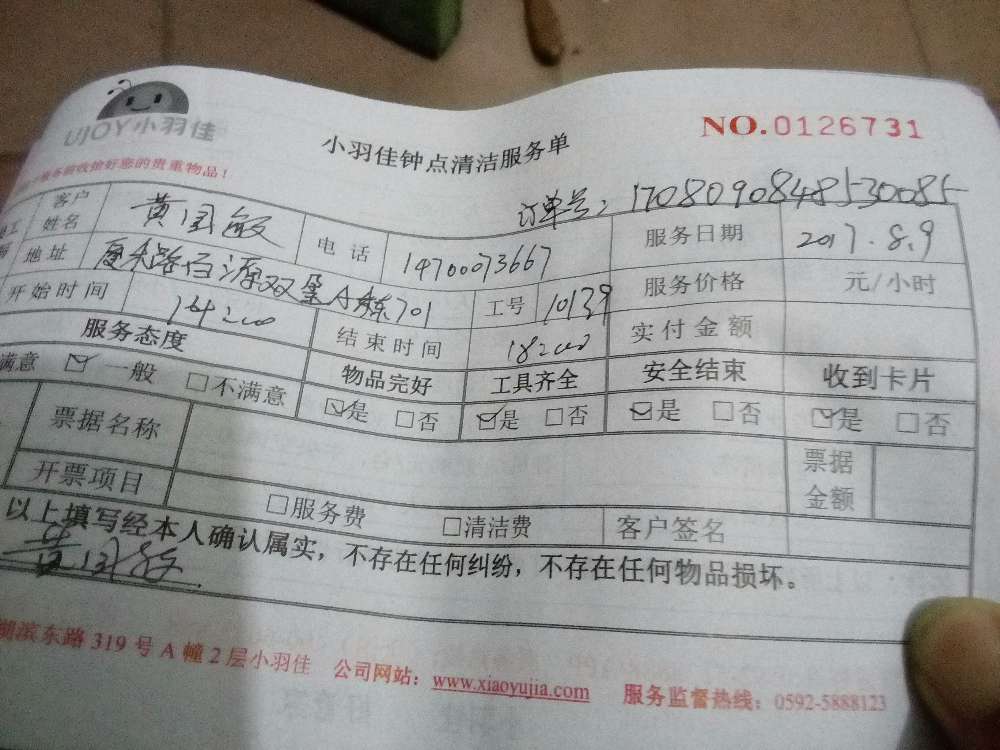 UJOY小羽佳
小羽佳钟点清洁服务单
NO.0126731
收拾好您的贵重物品！
订单号：1708090848530085
客户姓名 黄国敏 电话 14700073667 服务日期 2017.8.9
地址 百源双玺A栋701 工号 10139 服务价格 元/小时
开始时间 14:00 结束时间 18:00 实付金额
服务态度 物品完好 工具齐全 安全结束 收到卡片
满意 ☑一般 □不满意 ☑是 □否 ☑是 □否 ☑是 □否 ☑是 □否
票据名称 票据金额
开票项目 □服务费 □清洁费 客户签名
以上填写经本人确认属实，不存在任何纠纷，不存在任何物品损坏。
黄国敏
湖滨东路 319 号 A 幢 2 层小羽佳 公司网站：www.xiaoyujia.com 服务监督热线：0592-5888123